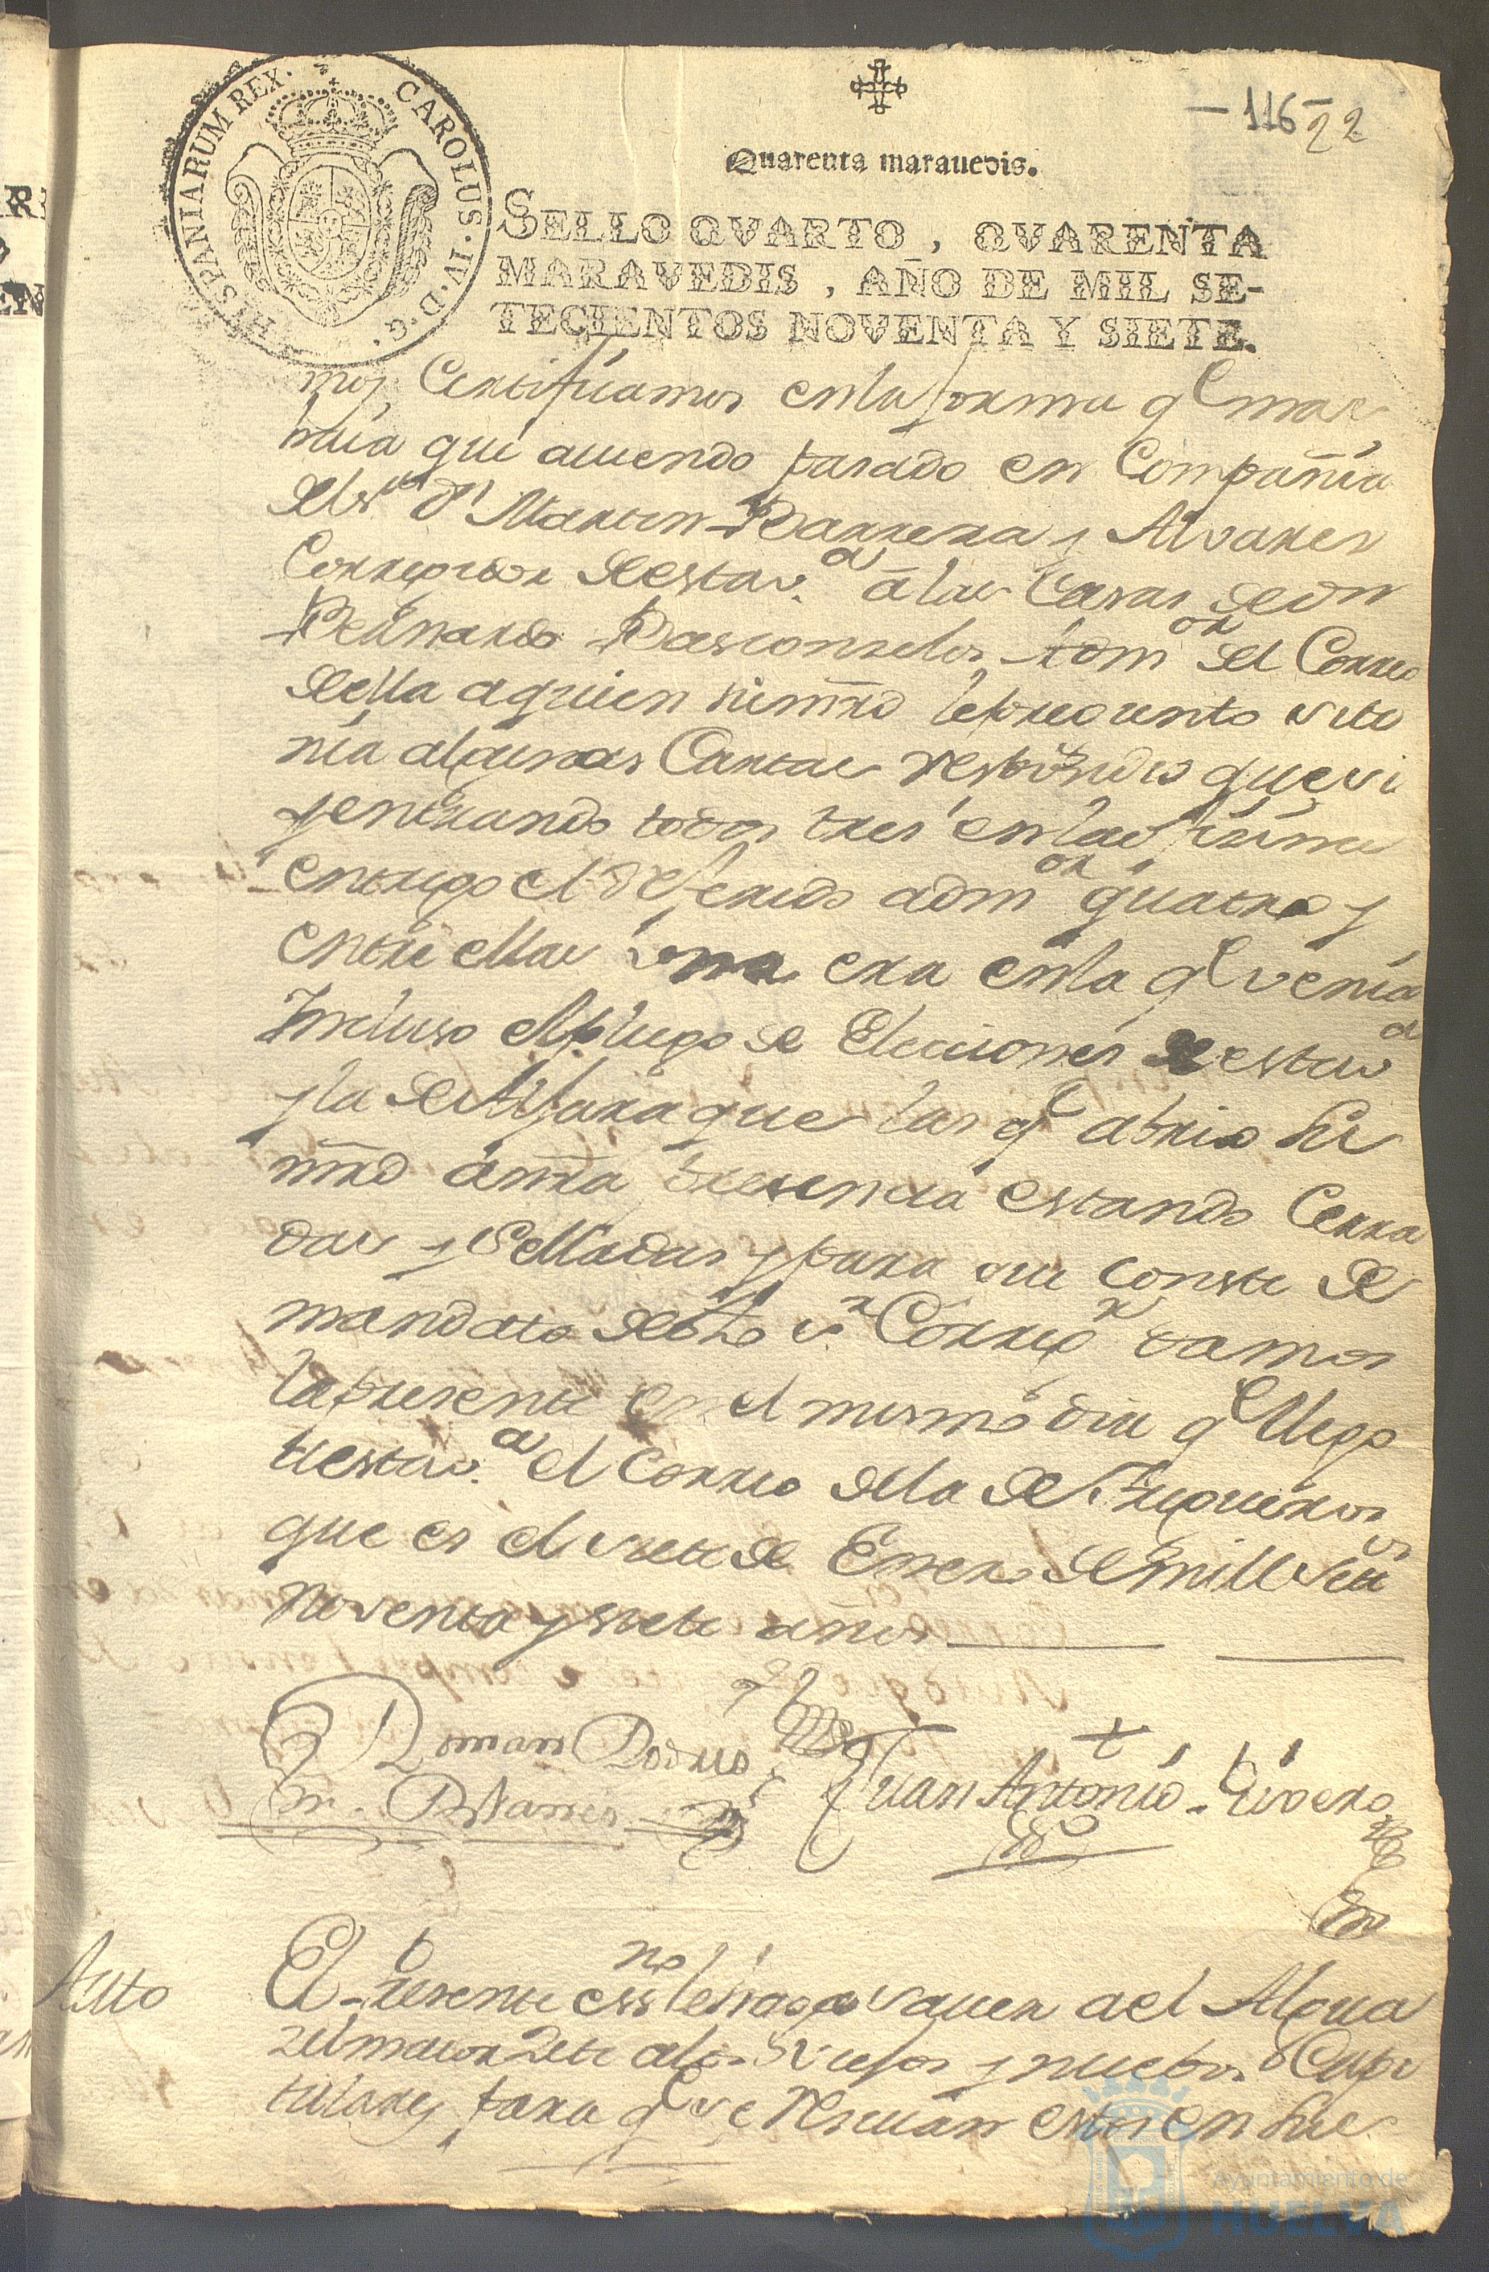 HISPANIARUM REX. CAROLUS. IV. D. G.
— 116 — 22
Quarenta marauedis.
SELLO QVARTO, QVARENTA
MARAVEDIS, AÑO DE MIL SE-
TECIENTOS NOVENTA Y SIETE.
mos Certificamos en la forma q.e mas
haia que auiendo pasado en Compañia
del s.or D.n Martin Barrera y Alvares
Corregidor de esta v.a a las Casas de Dn
Bernardo Basconzelos Adm.or del Correo
de ella a quien su mrd le pregunto si te
nia algunas Cartas respondio que si
y entrando todos tres en la
entrego el referido adm.or quatro y
entre ellas una era en la q.e venia
Incluso el pliego de Elecciones de esta v.a
y la de Aljaraque las q.e abrio su
mrd a nra presencia estando Cerra
das y Selladas y para que conste de
mandato de dho s.r Correg.r damos
la presente en el mismo dia q.e llego
a esta v.a el Correo de la de Trigueros
que es el siete de Enero de mill sett.s
noventa y siete años
Roman Rodrig
Juan Antonio Rivero
Auto
El presente ess.no le haga sauer a el Algua
zil maior Zite a los Viejos y nuebos Capi
tulares para q.e se reciuan estos en sus
Ayuntamiento de
HUELVA